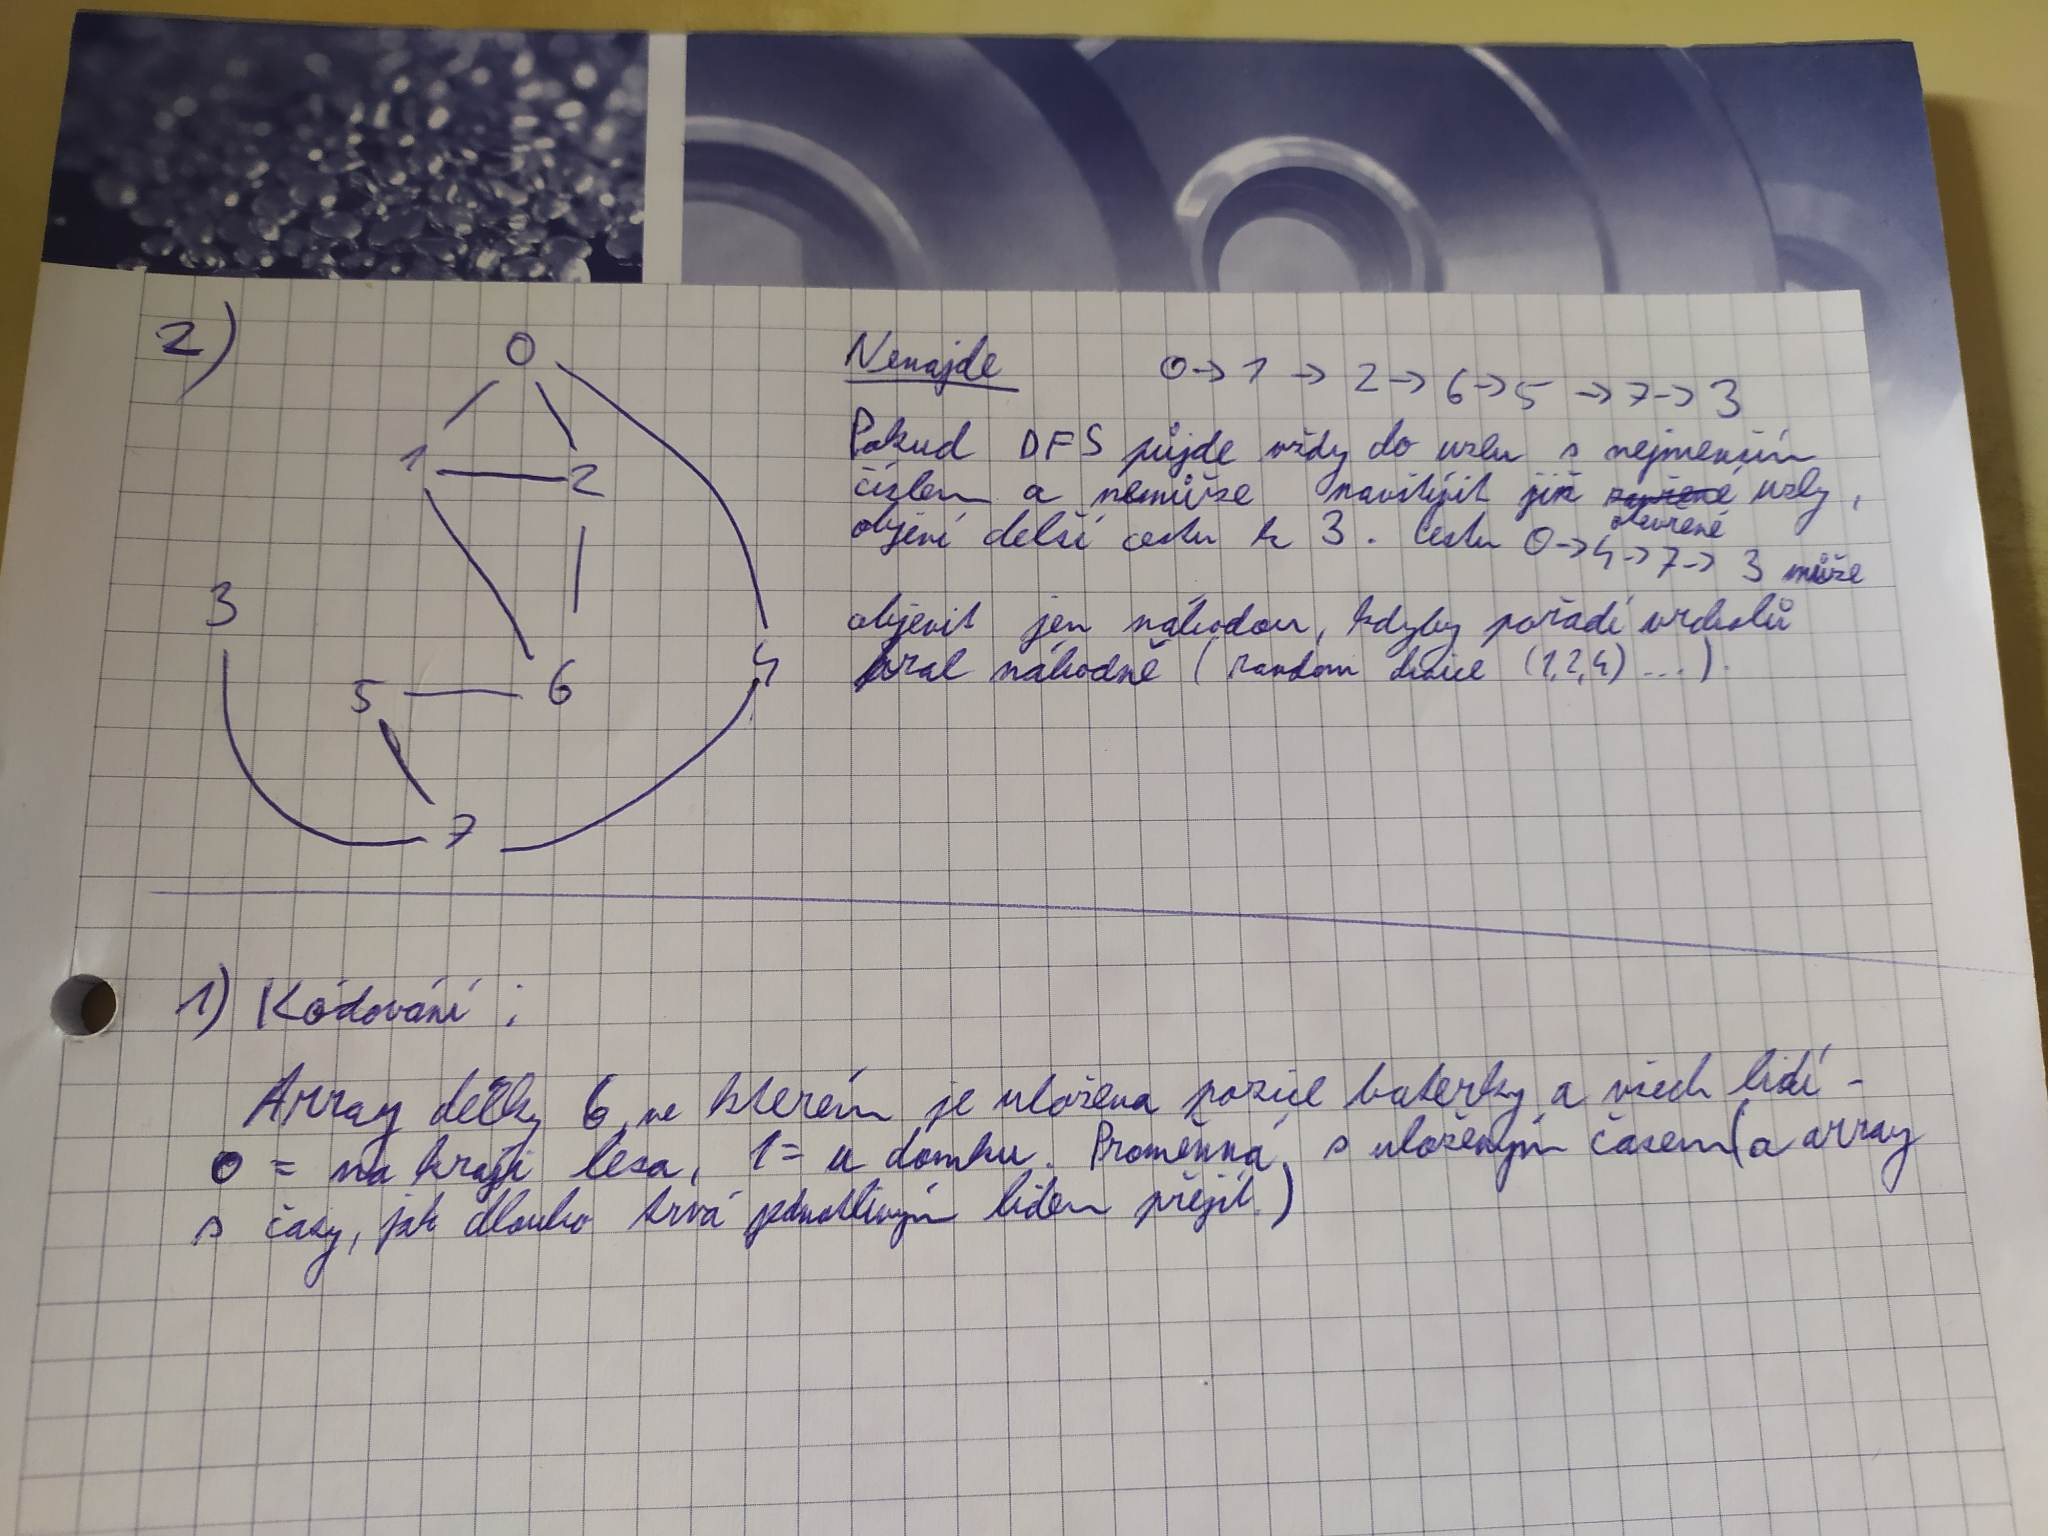 2)
0
1 2
3
4
5 6
7
Nenajde 0→1→2→6→5→7→3
Pokud DFS půjde vždy do uzlu s nejmenším
číslem a nemůže navštívit již otevřené uzly,
objeví delší cestu k 3. Cestu 0→4→7→3 může
objevit jen náhodou, kdyby pořadí vrcholů
bral náhodně (random choice (1,2,4) ...).
1) Kódování:
Array délky 6, ve kterém je uložena pozice baterky a všech lidí -
0 = na kraji lesa, 1 = u domku. Proměnná s uloženým časem (a array
s časy, jak dlouho trvá jednotlivým lidem přejít.)